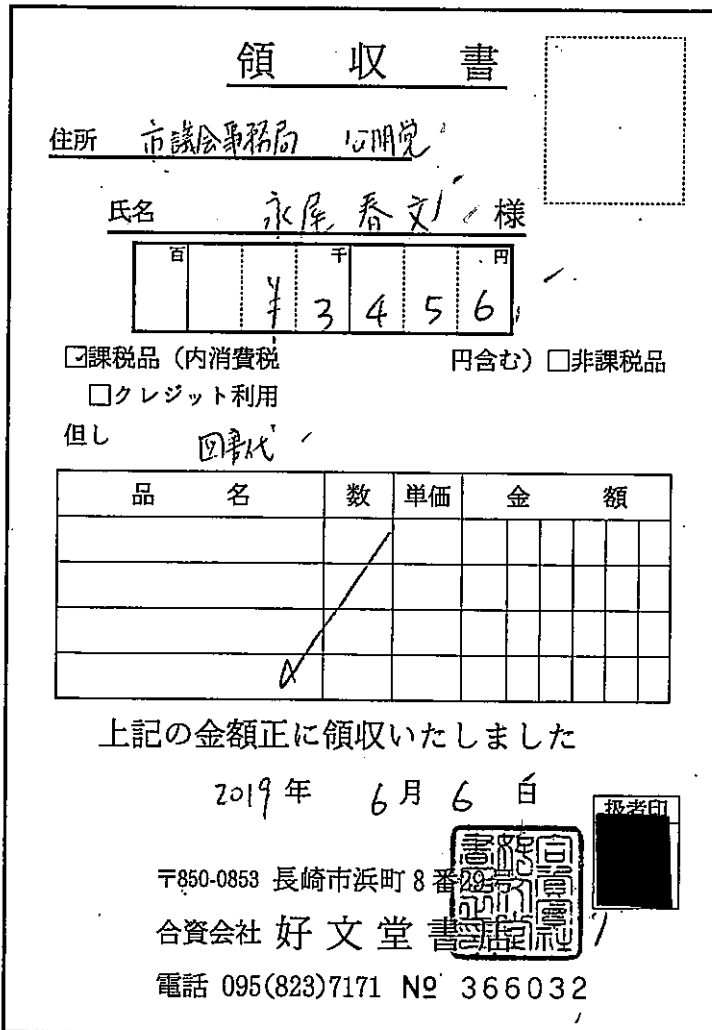 領収書
住所 市議会事務局 公明党
氏名 永尾春文 様
百 千 円
¥3456
☑課税品（内消費税 円含む）□非課税品
□クレジット利用
但し 図書代
品名 数 単価 金額
上記の金額正に領収いたしました
2019年 6月 6日
扱者印
〒850-0853 長崎市浜町8番29号
合資会社 好文堂書店
電話 095(823)7171 № 366032